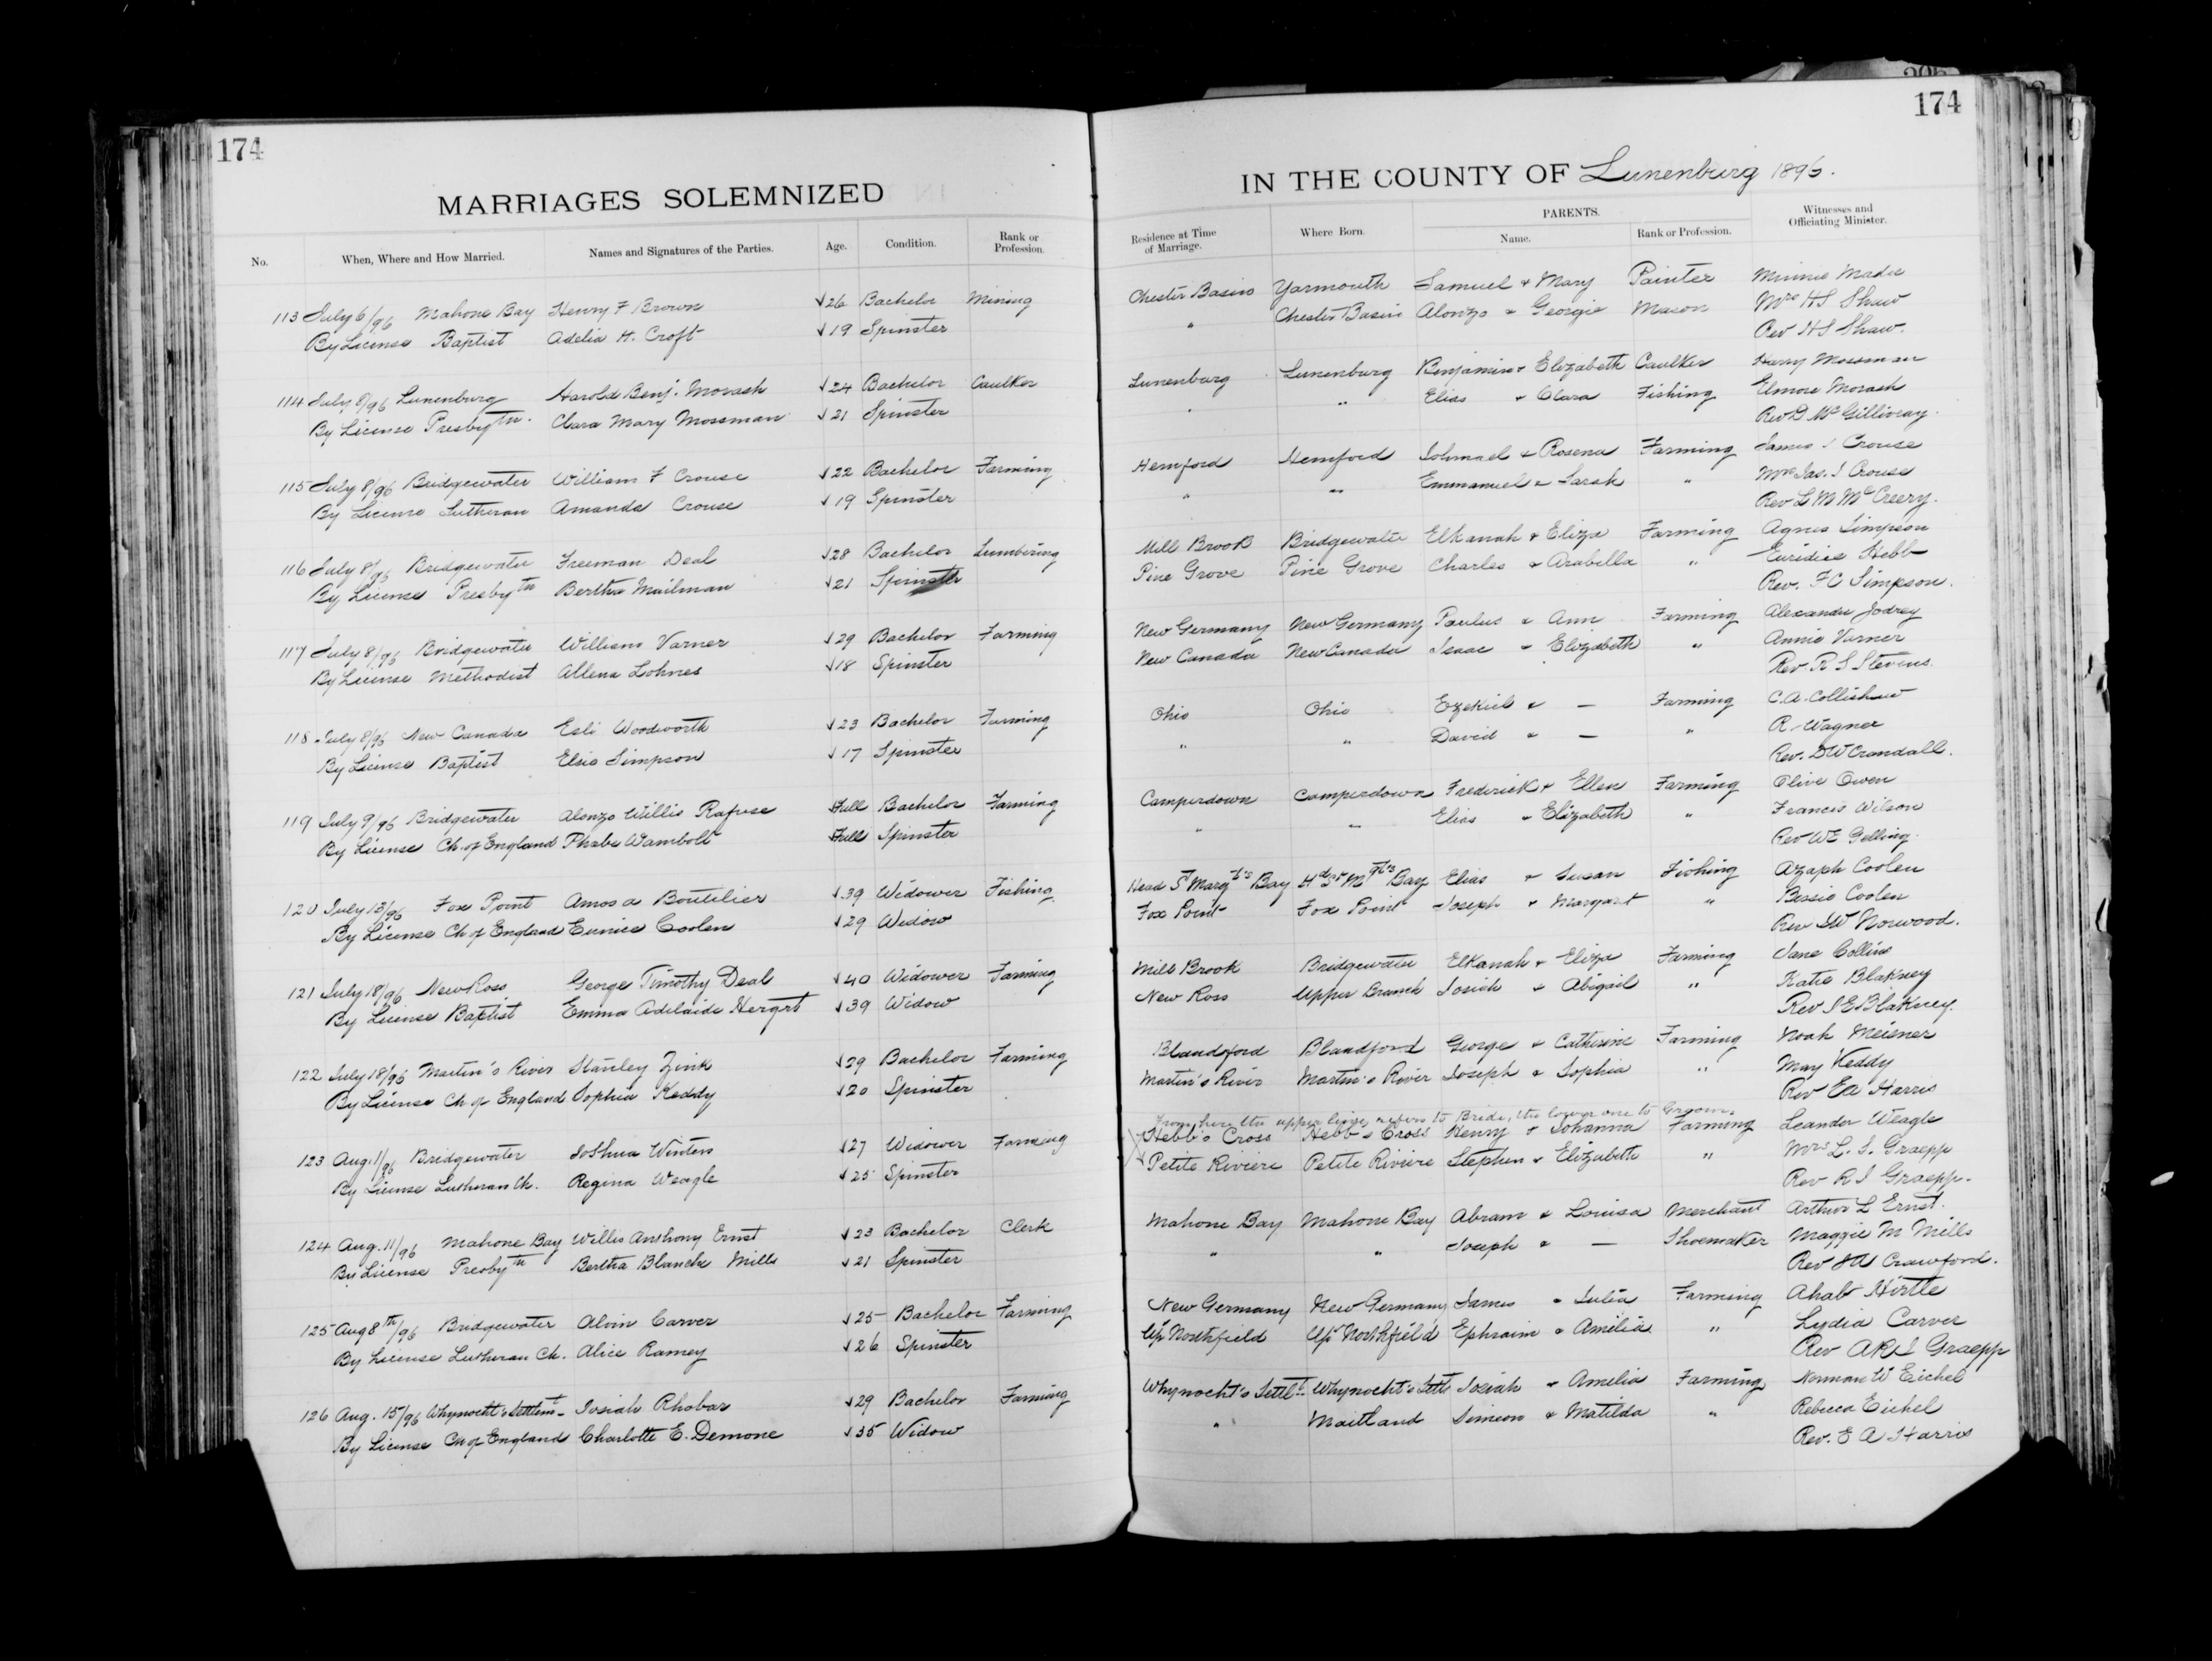 174
174
MARRIAGES SOLEMNIZED
IN THE COUNTY OF Lunenburg 1896.
No. When, Where and How Married. Names and Signatures of the Parties. Age. Condition. Rank or Profession. Residence at Time of Marriage. Where Born. PARENTS. Name. Rank or Profession. Witnesses and Officiating Minister.
113 July 6/96 Mahone Bay Henry F Brown 26 Bachelor Mining Chester Basin Yarmouth Samuel & Mary Painter Minnie Mader
By License Baptist Adelia H. Croft 19 Spinster " Chester Basin Alonzo & Georgie Mason Mrs H S Shaw
Rev H S Shaw.
114 July 8/96 Lunenburg Harold Benj. Morash 24 Bachelor Caulker Lunenburg Lunenburg Benjamin & Elizabeth Caulker Harry Mossman
By License Presbytn. Clara Mary Mossman 21 Spinster " " Elias & Clara Fishing Elmore Morash
Rev D McGillivray.
115 July 8/96 Bridgewater William F Crouse 22 Bachelor Farming Hemford Hemford & Rosena Farming James I Crouse
By License Lutheran Amanda Crouse 19 Spinster " " Emmanuel & Sarah " Mrs Jas. I Crouse
Rev L M McCreery.
116 July 8/96 Bridgewater Freeman Deal 28 Bachelor Lumbering Mill Brook Bridgewater Elkanah & Eliza Farming Agnes Simpson
By License Presbytn Bertha Mailman 21 Spinster Pine Grove Pine Grove Charles & Arabella " Euridice Hebb
Rev. F C Simpson.
117 July 8/96 Bridgewater William Varner 29 Bachelor Farming New Germany New Germany Paulus & Ann Farming Alexander Jodrey
By License Methodist Allena Lohnes 18 Spinster New Canada New Canada Isaac & Elizabeth " Annie Varner
Rev. R S Stevens.
118 July 8/96 New Canada Esli Woodworth 23 Bachelor Farming Ohio Ohio Ezekiel & — Farming C. A. Collishaw
By License Baptist Elsie Simpson 17 Spinster " " David & — " R. Wagner
Rev. D W Crandall.
119 July 9/96 Bridgewater Alonzo Willis Rafuse Full Bachelor Farming Camperdown Camperdown Frederick & Ellen Farming Olive Owen
By License Ch. of England Phabe Wambolt Full Spinster " " Elias & Elizabeth " Francis Wilson
Rev W E Gelling.
120 July 13/96 Fox Point Amos A Boutilier 39 Widower Fishing Head St Margt's Bay Hd St Mgt's Bay Elias & Susan Fishing Azaph Coolen
By License Ch of England Eunice Coolen 29 Widow Fox Point Fox Point Joseph & Margart " Bessie Coolen
Rev Norwood.
121 July 18/96 New Ross George Timothy Deal 40 Widower Farming Mill Brook Bridgewater Elkanah & Eliza Farming Jane Collins
By License Baptist Emma Adelaide Hergert 39 Widow New Ross Upper Branch Josiah & Abigail " Katie Blakney
Rev I E Blakney.
122 July 18/96 Martin's River Stanley Zink 29 Bachelor Farming Blandford Blandford George & Catherine Farming Noah Meisner
By License Ch of England Sophia Keddy 20 Spinster Martin's River Martin's River Joseph & Sophia " May Keddy
Rev E A Harris
From here the upper line refers to Bride, the lower one to Groom.
123 Aug. 1/96 Bridgewater Joshua Winters 27 Widower Farming Hebb's Cross Hebb's Cross Henry & Johanna Farming Leander Weagle
By License Lutheran Ch. Regina Weagle 25 Spinster Petite Riviere Petite Riviere Stephen & Elizabeth " Mrs L. S. Graepp
Rev R I Graepp.
124 Aug. 11/96 Mahone Bay Willis Anthony Ernst 23 Bachelor Clerk Mahone Bay Mahone Bay Abram & Louisa Merchant Arthur L Ernst.
By License Presbytn Bertha Blanche Mills 21 Spinster " " Joseph & — Shoemaker Maggie M Mills
Rev Crawford.
125 Aug 8th/96 Bridgewater Alvin Carver 25 Bachelor Farming New Germany New Germany James & Julia Farming Ahab Hirtle
By License Lutheran Ch. Alice Ramey 26 Spinster Up Northfield Upr Northfield Ephraim & Amelia " Lydia Carver
Rev A R I Graepp
126 Aug. 15/96 Whynocht's Settlemt Josiah Rhobar 29 Bachelor Farming Whynocht's Settlt Whynocht's Settlt Josiah & Amelia Farming Norman W Eichel
By License Ch of England Charlotte E. Demone 35 Widow " Maitland Simeon & Matilda " Rebecca Eichel
Rev. E A Harris